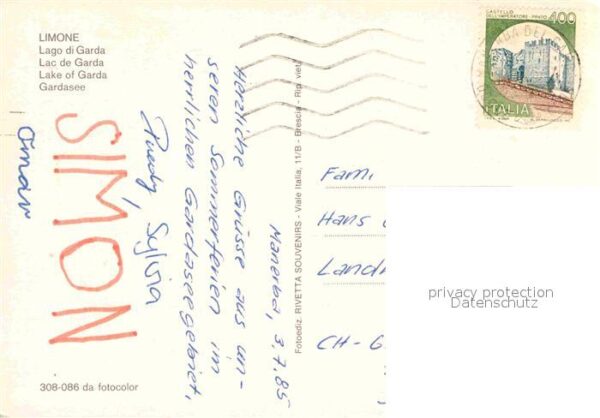 LIMONE
Lago di Garda
Lac de Garda
Lake of Garda
Gardasee
Manerba, 3.7.85
Herzliche Grüsse aus un-
seren Sommerferien im
herrlichen Gardaseegebiet,
Ruedy, Sylvia
SIMON
308-086 da fotocolor
Fotoediz. RIVETTA SOUVENIRS - Viale Italia, 11/B - Brescia - Rip. viet.
CASTELLO
DELL'IMPERATORE - PRATO
400
ITALIA
Fami
Hans
Land
CH-
privacy protection
Datenschutz